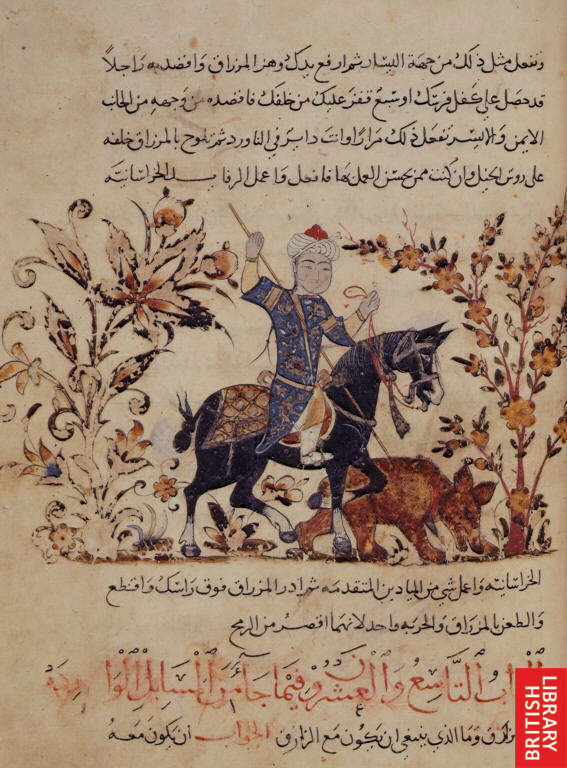 وتفعل مثل ذلك من جهة اليسار ثم ارفع يدك وهز المزراق واقصد به راجلاً
قد حصل علي كفل فرسك او سبع قفز عليك من خلفك فاقصده من وجهه من الجانب
الايمن والايسر تفعل ذلك مرارا وانت داير في الناورد ثم تلوح بالمزراق خلفه
على روس الخيل وان كنت ممن يحسن العمل بها فافعل واعمل الخراسانية
الخراسانية واعمل شي من الميادين المتقدمه ثم ادر المزراق فوق راسك واقطع
والطعن بالمزراق والحربه واحد لانهما اقصر من الرمح
الباب التاسع والعشرون فيما جآ من المسايل
وما الذي ينبغي ان يكون مع الزارق الجواب ان يكون معه
BRITISH LIBRARY